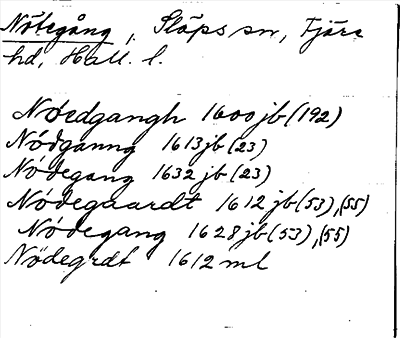 Nötegång, Släps sn, Fjäre
hd, Hall. l.
Nøedgangh 1600 jb (192)
Nödganng 1613 jb (23)
Nödegang 1632 jb (23)
Nödegaardt 1612 jb (53), (55)
Nödegang 1628 jb (53), (55)
Nödegrdt 1612 ml